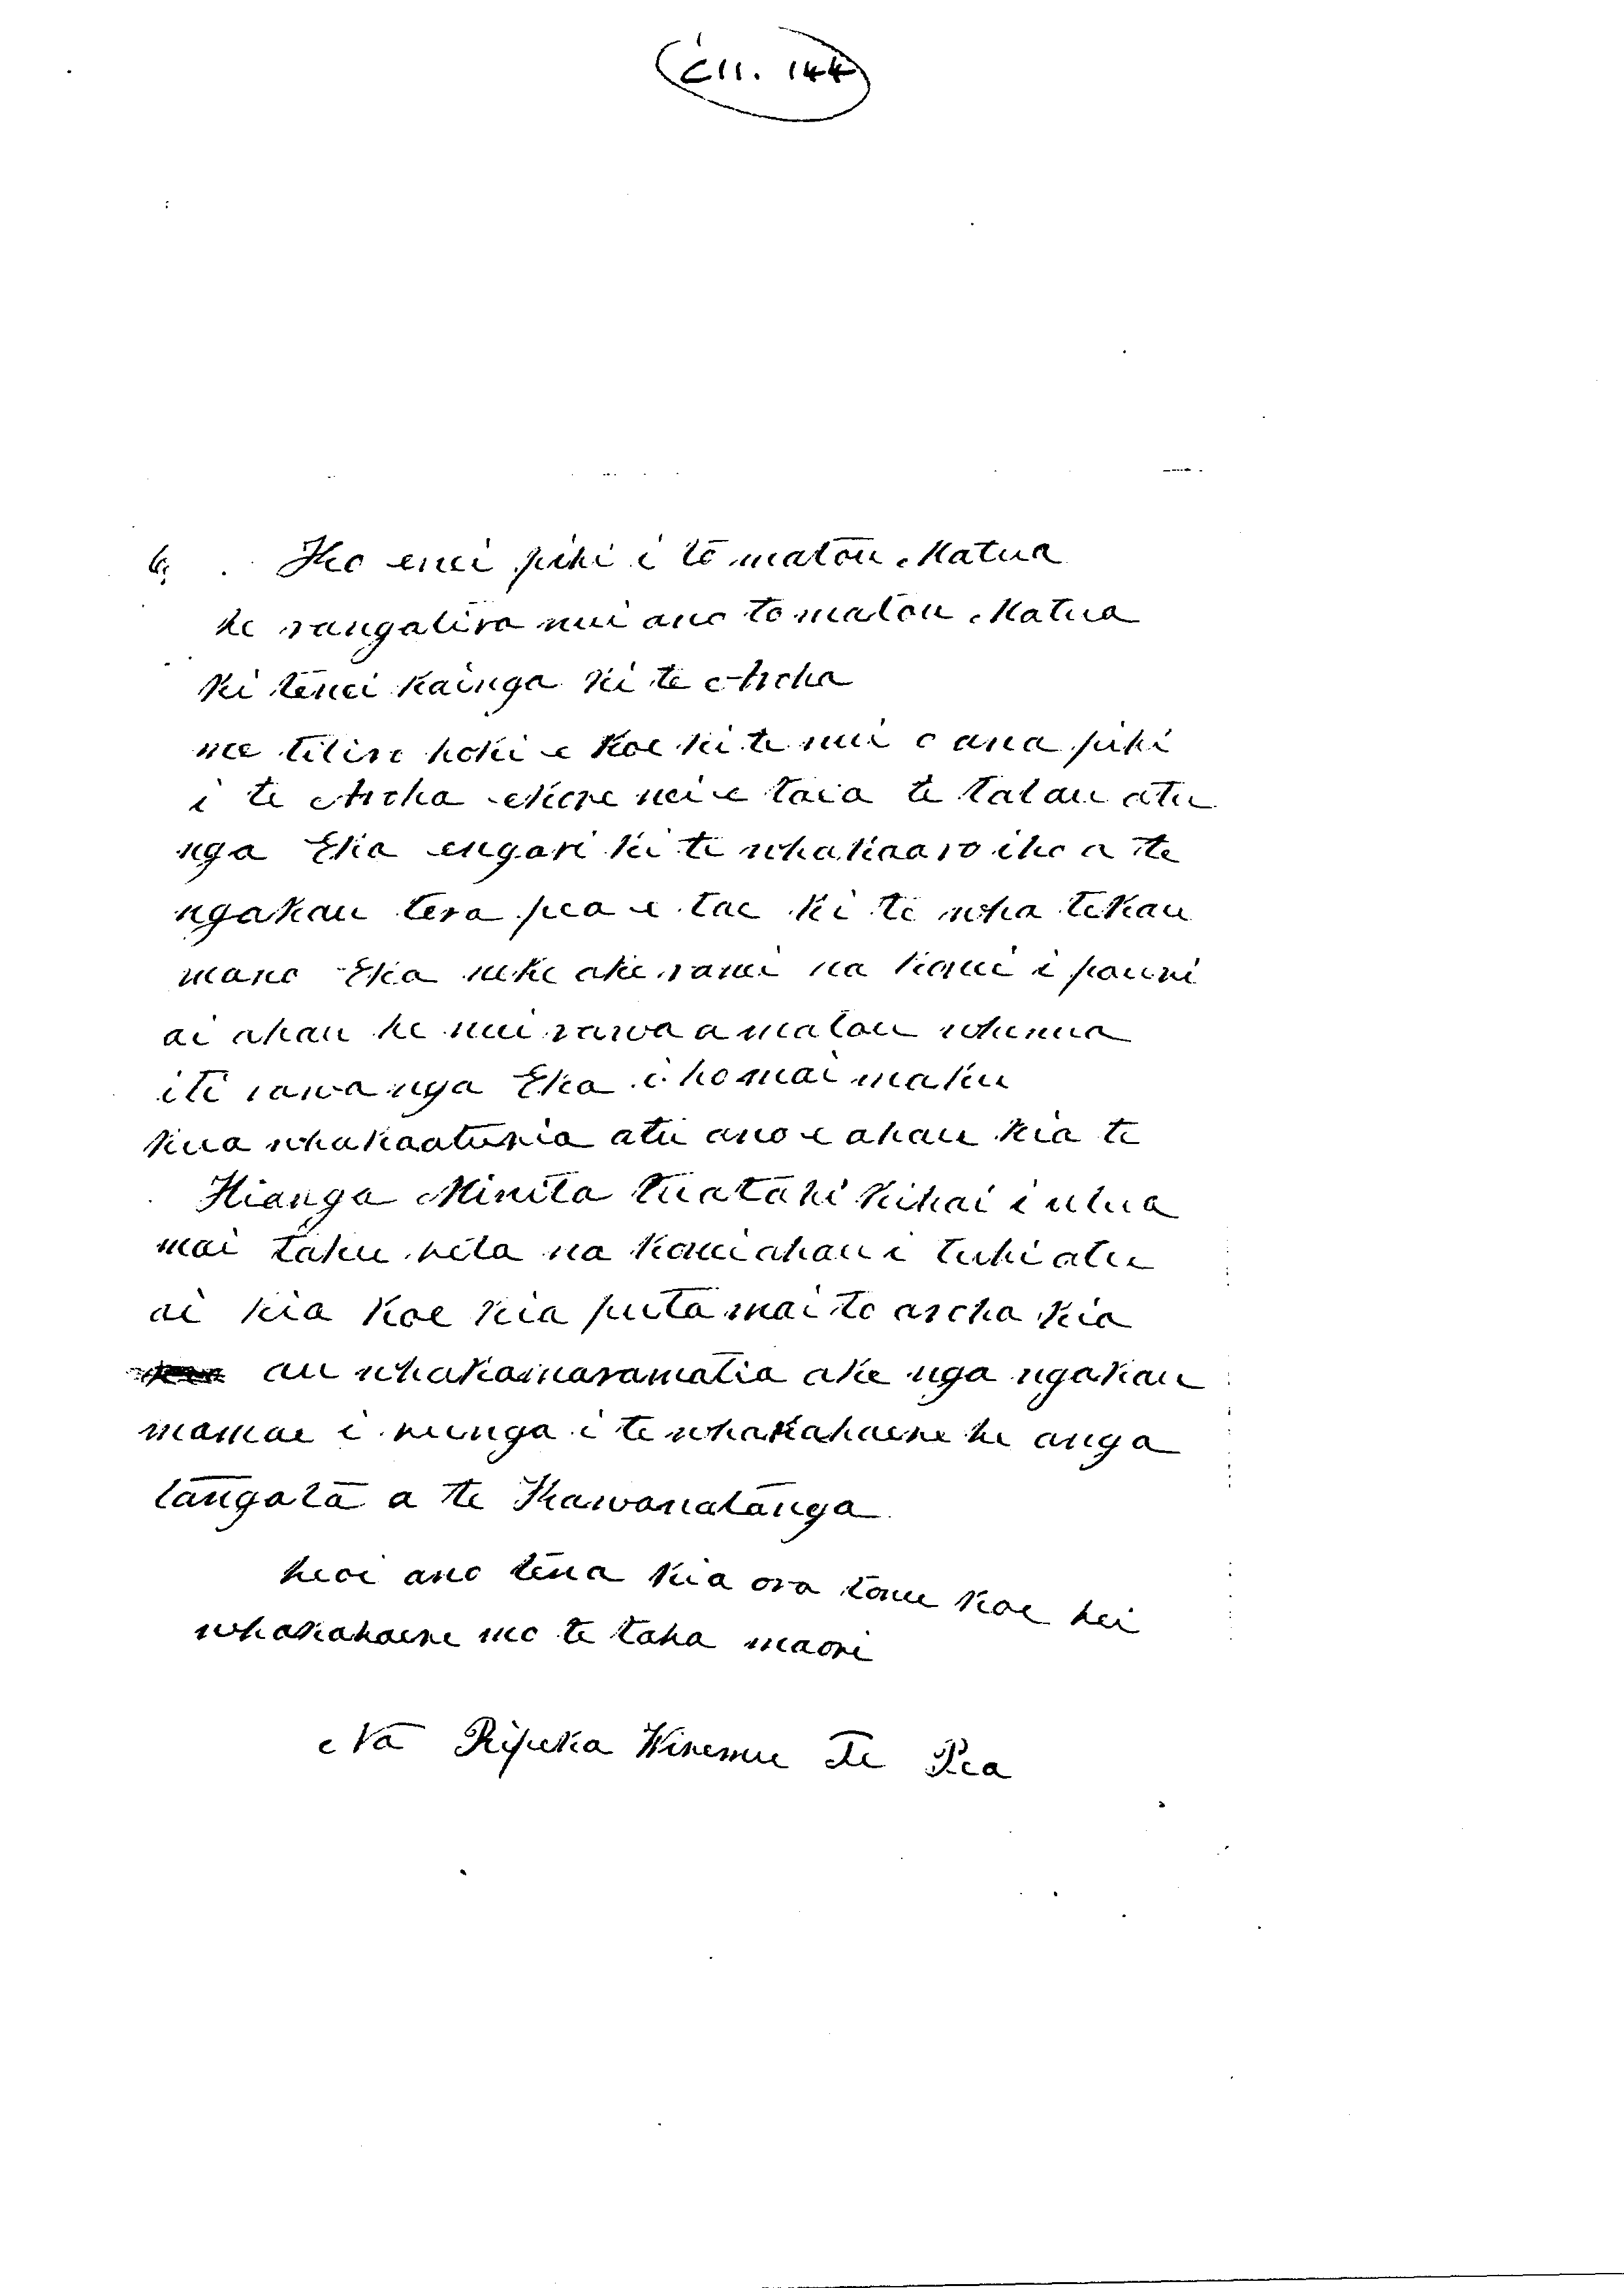 C11. 144
6. Ko enei piki i to matou Matua
he rangatira nui ano to matou Matua
ki tenei kainga ki te Aroha
me titiro hoki e koe ki te nui o ana piki
i te Aroha ekore nei e taea te tatau atu
nga Eka engari ki te whakaaro iho a te
ngakau tera pea e tae ki te wha tekau
mano Eka neke ake ranei na konei i pouri
ai ahau he nui rawa a matou whenua
iti rawa nga Eka i homai maku
kua whakaaturia atu ano e ahau kia te
Hianga Minita tuatahi kihai i utua
mai taku reta na konei ahau i tuhi atu
ai kia koe kia puta mai to aroha kia
au whakamaramatia ake nga ngakau
mamae i runga i te whakahaere he anga
tangata a te Kawanatanga
heoi ano tena kia ora tonu koe hei
whakahaere mo te taha maori
Na Ripeka Wiremu Te Pea